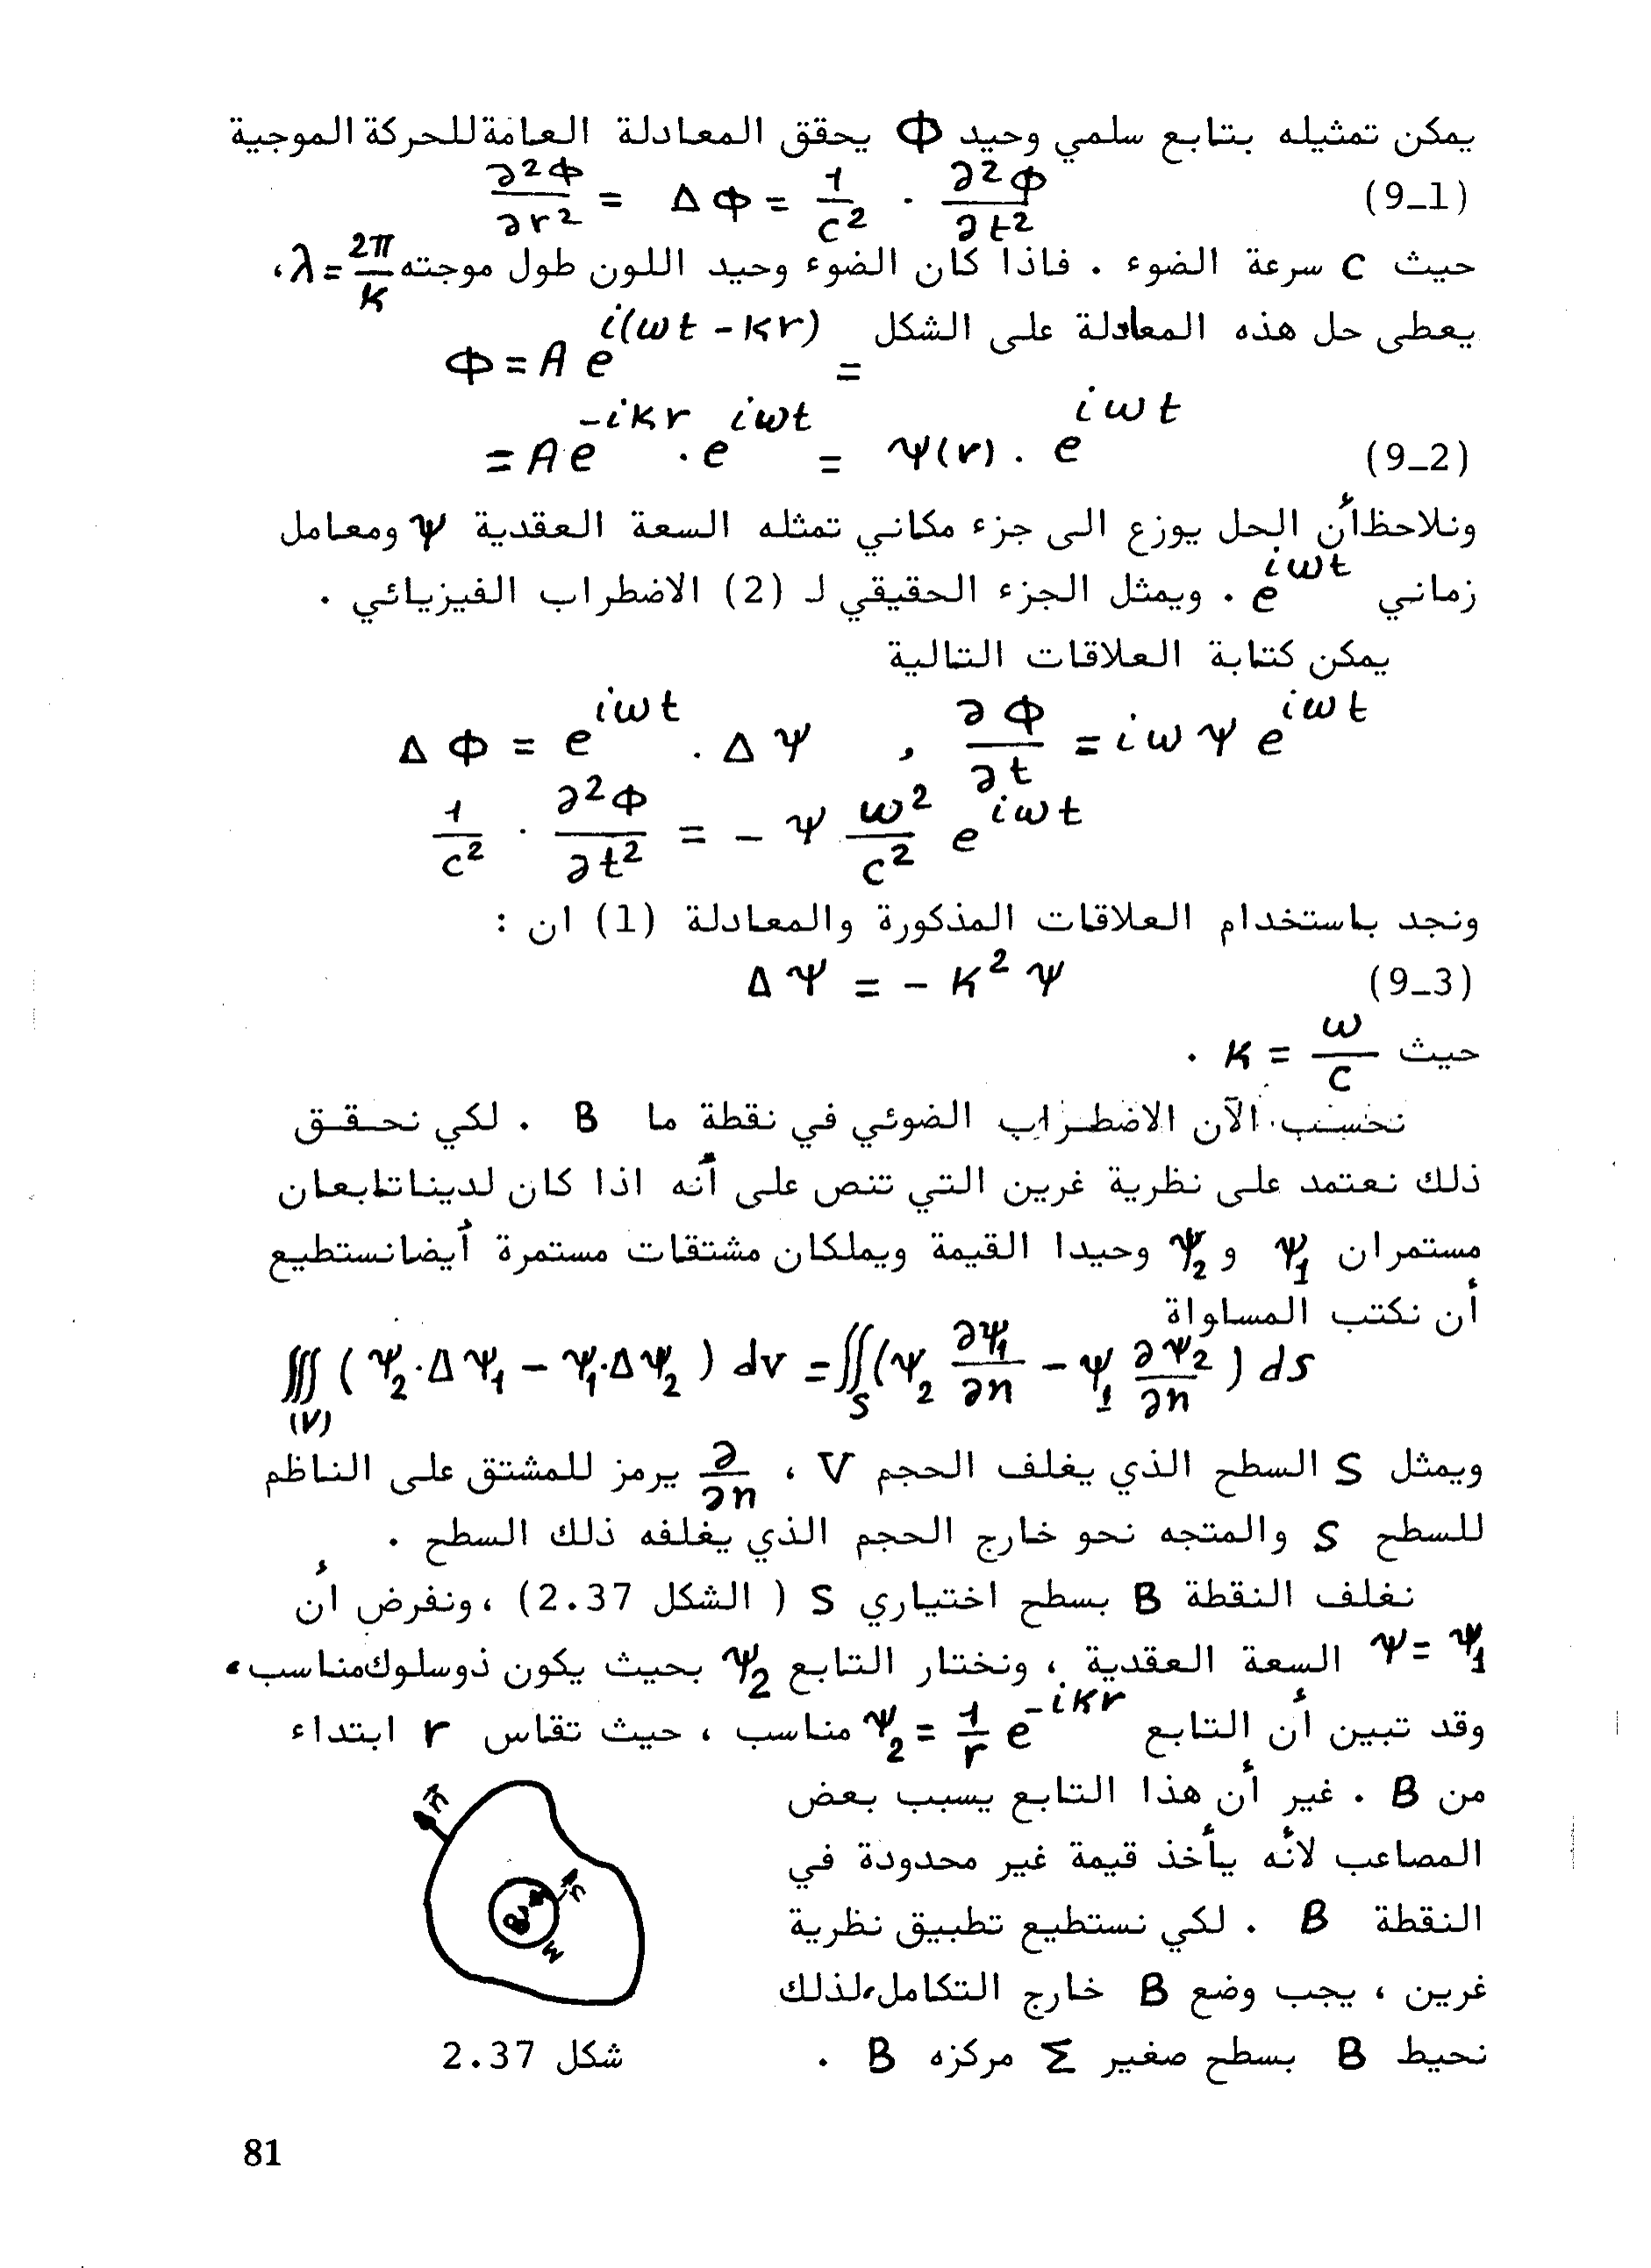 يمكن تمثيله بتابع سلمي وحيد Φ يحقق المعادلة العامة للحركة الموجية
∂²Φ/∂r² = ΔΦ = 1/c² · ∂²Φ/∂t² (9_1)
حيث c سرعة الضوء . فاذا كان الضوء وحيد اللون طول موجته λ = 2π/k ،
يعطى حل هذه المعادلة على الشكل
Φ = A e^{i(ωt - kr)} =
= A e^{-ikr} · e^{iωt} = Ψ(r) . e^{iωt} (9_2)
ونلاحظ أن الحل يوزع الى جزء مكاني تمثله السعة العقدية Ψ ومعامل
زماني e^{iωt} . ويمثل الجزء الحقيقي لـ (2) الاضطراب الفيزيائي .
يمكن كتابة العلاقات التالية
ΔΦ = e^{iωt} . ΔΨ , ∂Φ/∂t = iωΨ e^{iωt}
1/c² · ∂²Φ/∂t² = - Ψ ω²/c² e^{iωt}
ونجد باستخدام العلاقات المذكورة والمعادلة (1) ان :
ΔΨ = - k² Ψ (9_3)
حيث k = ω/c .
نحسب الآن الاضطراب الضوئي في نقطة ما B . لكي نحقق
ذلك نعتمد على نظرية غرين التي تنص على أنه اذا كان لدينا تابعان
مستمران Ψ₁ و Ψ₂ وحيدا القيمة ويملكان مشتقات مستمرة أيضا نستطيع
أن نكتب المساواة
∭_(V) ( Ψ₂·ΔΨ₁ - Ψ₁·ΔΨ₂ ) dv = ∬_S (Ψ₂ ∂Ψ₁/∂n - Ψ₁ ∂Ψ₂/∂n ) ds
ويمثل S السطح الذي يغلف الحجم V ، ∂/∂n يرمز للمشتق على الناظم
للسطح S والمتجه نحو خارج الحجم الذي يغلفه ذلك السطح .
نغلف النقطة B بسطح اختياري S ( الشكل 2.37) ، ونفرض أن
Ψ = Ψ₁ السعة العقدية ، ونختار التابع Ψ₂ بحيث يكون ذو سلوك مناسب ،
وقد تبين أن التابع Ψ₂ = 1/r e^{-ikr} مناسب ، حيث تقاس r ابتداء
من B . غير أن هذا التابع يسبب بعض
المصاعب لأنه يأخذ قيمة غير محدودة في
النقطة B . لكي نستطيع تطبيق نظرية
غرين ، يجب وضع B خارج التكامل ، لذلك
نحيط B بسطح صغير Σ مركزه B .
n
n
B
Σ
شكل 2.37
81